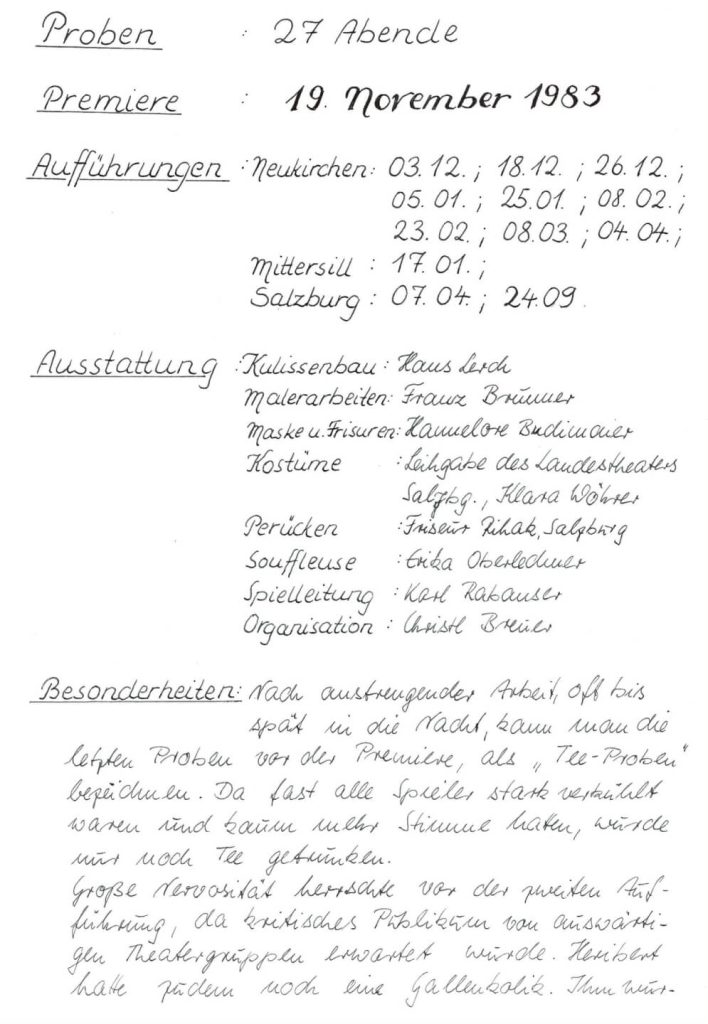 Proben : 27 Abende
Premiere : 19. November 1983
Aufführungen : Neukirchen: 03.12. ; 18.12. ; 26.12. ;
05.01. ; 25.01. ; 08.02. ;
23.02. ; 08.03. ; 04.04. ;
Mittersill : 17.01. ;
Salzburg : 07.04. ; 24.09.
Ausstattung : Kulissenbau : Hans Lerch
Malerarbeiten: Franz Brunner
Maske u. Frisuren: Hannelore Budimaier
Kostüme : Leihgabe des Landestheaters
Salzbg., Klara Wöhrer
Perücken : Friseur Rihak, Salzburg
Souffleuse : Erika Oberlechner
Spielleitung : Karl Rabanser
Organisation : Christl Breuer
Besonderheiten: Nach anstrengender Arbeit, oft bis
spät in die Nacht, kann man die
letzten Proben vor der Premiere, als „Tee-Proben"
bezeichnen. Da fast alle Spieler stark verkühlt
waren und kaum mehr Stimme hatten, wurde
nur noch Tee getrunken.
Große Nervosität herrschte vor der zweiten Auf-
führung, da kritisches Publikum von auswärti-
gen Theatergruppen erwartet wurde. Heribert
hatte zudem noch eine Gallenkolik. Ihm wur-